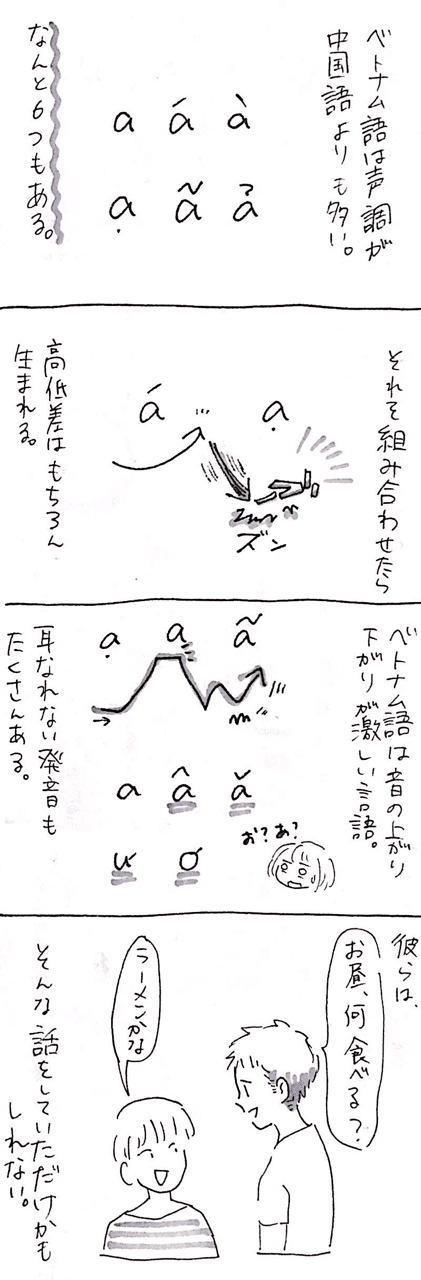 ベトナム語は声調が
中国語よりも多い。
a á à
ạ ã ả
なんと6つもある。
それを組み合わせたら
á ạ
ズン
高低差はもちろん
生まれる。
ベトナム語は音の上がり
下がりが激しい言語。
ạ a ã
a â ă
ư ơ
お?あ?
耳なれない発音も
たくさんある。
彼らは、
お昼、何食べる?
ラーメンかな
そんな話をしていただけかも
しれない。